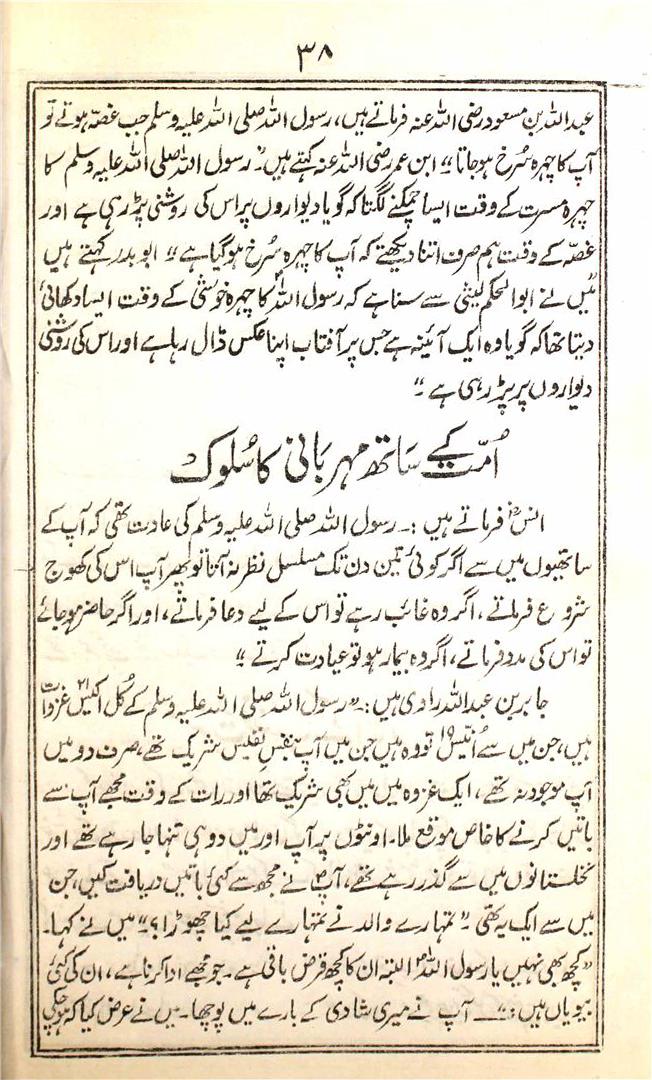 ۳۸
عبداللہ بن مسعود رضی اللہ عنہ فرماتے ہیں، رسول اللہ صلی اللہ علیہ وسلم جب غصّہ ہوتے تو
آپ کا چہرہ سُرخ ہو جاتا“ ابن عمر رضی اللہ عنہ کہتے ہیں ”رسول اللہ صلی اللہ علیہ وسلم کا
چہرہ مسرت کے وقت ایسا چمکنے لگتا کہ گویا دیواروں پر اس کی روشنی پڑ رہی ہے اور
غصّہ کے وقت ہم صرف اتنا دیکھتے کہ آپ کا چہرہ سُرخ ہو گیا ہے“ ابو بدر کہتے ہیں
میں نے ابوالحکم لیثی سے سنا ہے کہ رسول اللہؐ کا چہرہ خوشی کے وقت ایسا دکھائی
دیتا تھا کہ گویا وہ ایک آئینہ ہے جس پر آفتاب اپنا عکس ڈال رہا ہے اور اس کی روشنی
دیواروں پر پڑ رہی ہے“
اُمّت کے ساتھ مہربانی کا سُلوک
انسؓ فرماتے ہیں :۔ رسول اللہ صلی اللہ علیہ وسلم کی عادت تھی کہ آپ کے
ساتھیوں میں سے اگر کوئی تین دن تک مسلسل نظر نہ آتا تو پھر آپ اس کی کھوج
شروع فرماتے، اگر وہ غائب رہے تو اس کے لیے دعا فرماتے، اور اگر حاضر ہو جائے
تو اس کی مدد فرماتے، اگر وہ بیمار ہو تو عیادت کرتے“
جابر بن عبداللہ راوی ہیں :۔ ”رسول اللہ صلی اللہ علیہ وسلم کے کُل اکیس ۲۱ غزوات
ہیں، جن میں سے اُنیس ۱۹ تو وہ ہیں جن میں آپ بنفسِ نفیس شریک تھے، صرف دو میں
آپ موجود نہ تھے، ایک غزوہ میں میں بھی شریک تھا اور رات کے وقت مجھے آپ سے
باتیں کرنے کا خاص موقع ملا۔ اونٹوں پر آپ اور میں دو ہی تنہا جا رہے تھے اور
نخلستانوں میں سے گذر رہے تھے، آپؐ نے مجھ سے کئی باتیں دریافت کیں، جن
میں سے ایک یہ تھی۔ ”تمہارے والد نے تمہارے لیے کیا چھوڑا؟“ میں نے کہا۔
”کچھ بھی نہیں یا رسول اللہؐ البتہ ان کا کچھ قرض باقی ہے۔ جو مجھے ادا کرنا ہے، ان کی کئی
بیویاں ہیں :“ ـــ آپ نے میری شادی کے بارے میں پوچھا۔ میں نے عرض کیا کہ ہو چکی